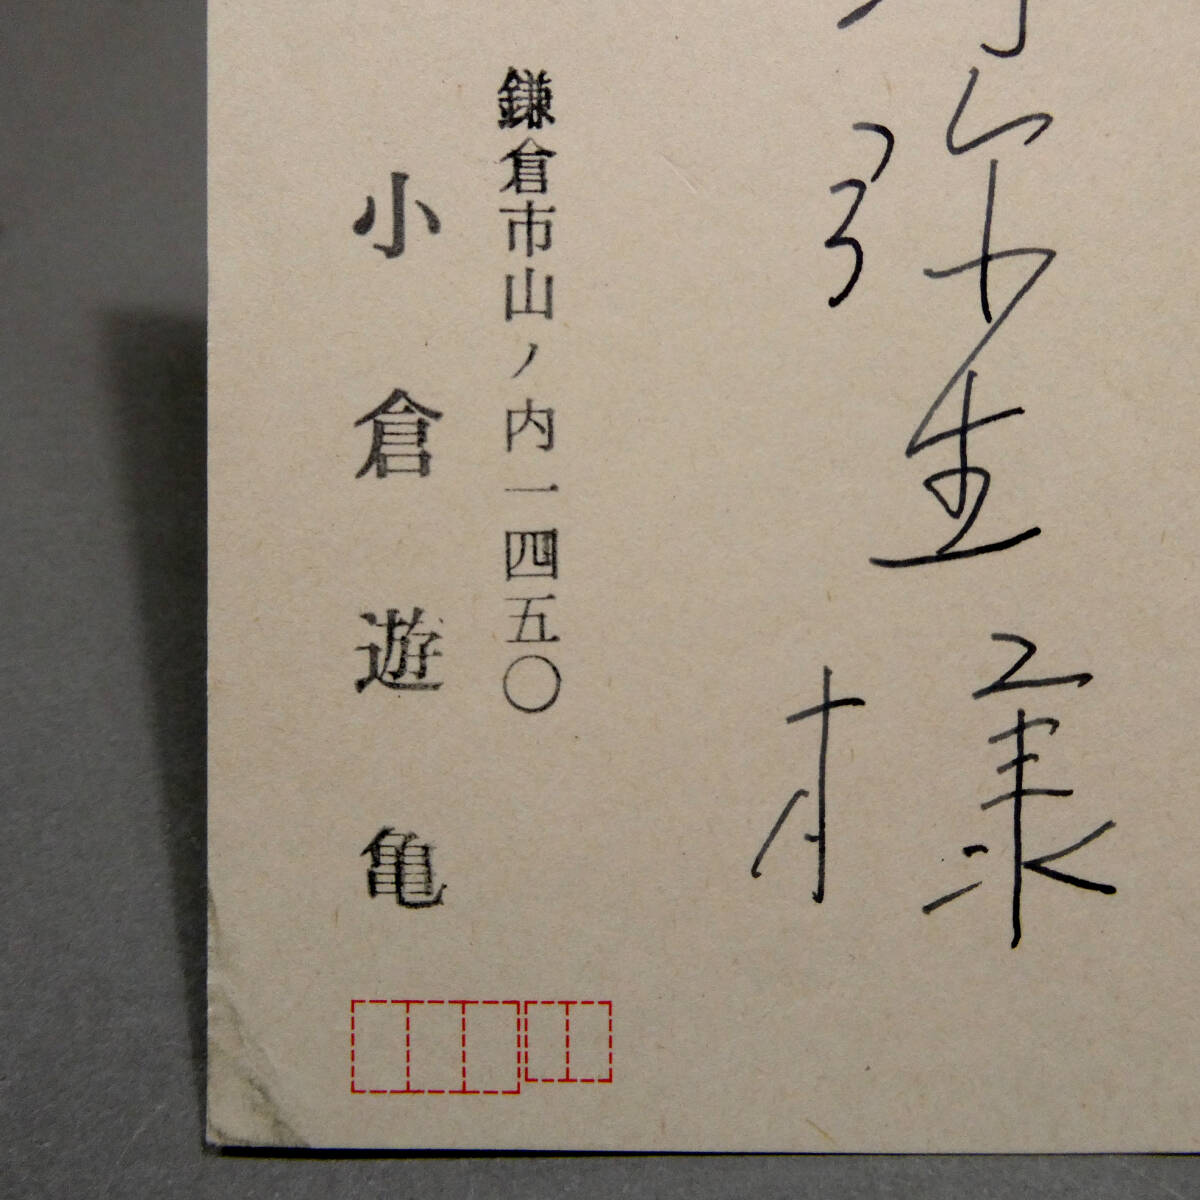 弥生様
鎌倉市山ノ内一四五〇
小倉遊亀